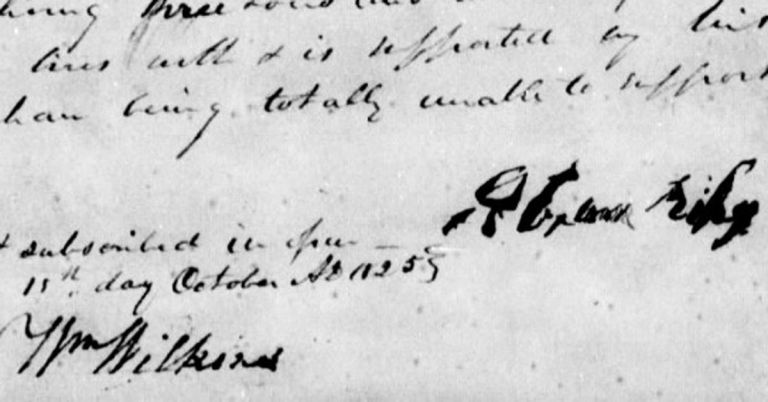 three
lives with & is supported by his
than being totally unable to support
subscribed in open
11th day October AD 1825
Wm Wilkins